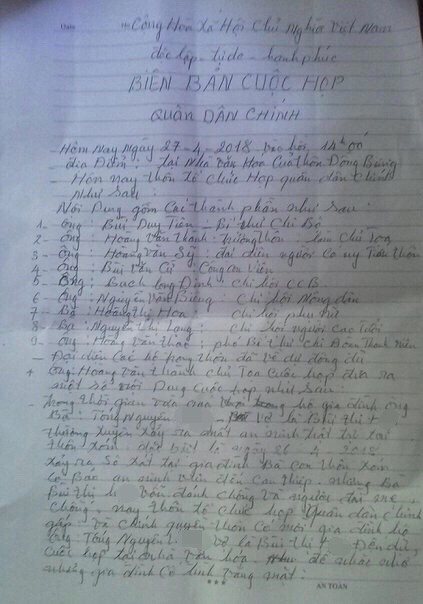 Cộng Hoà Xã Hội Chủ Nghĩa Việt Nam
độc lập - tự do - hạnh phúc
BIÊN BẢN CUỘC HỌP
QUÂN DÂN CHÍNH
Hôm Nay Ngày 27-4-2018 vào hồi 14h00
địa Điểm : tại Nhà văn Hoá Của thôn Đồng Bưởng
Hôm nay thôn tổ chức Họp quân dân chính
Như Sau
Nội Dung gồm Các thành phần như Sau :
1- Ông : Bùi Duy Tiên - Bí thư Chi Bộ
2 - Ông : Hoàng Văn Thành trưởng thôn - làm Chủ toạ
3 - Ông : Hoàng Văn Sỹ : đại diện người có uy Tín thôn
4 - Ông : Bùi Văn Cử Công an Viên
5 - Ông : Bạch long Định : chi hội CCB
6 Ông : Nguyễn Văn Biểng : Chi hội Nông dân
7 - Bà : Hoàng Thị Hoa : Chi hội phụ nữ
8 Bà : Nguyễn Thị Long : Chi hội người Cao Tuổi
9 - Ông : Hoàng Văn Thao : phó Bí thư chi Đoàn Thanh niên
- Đại diện Các hộ trong thôn đã về dự đông đủ
+ Ông: Hoàng Văn thành chủ Toạ Cuộc họp đưa ra
một số nội Dung cuộc họp như Sau :
- trong thời gian vừa qua hộ gia đình ông
Tống Nguyên Vợ là Bùi thị t
thường xuyên xảy ra mất an ninh trật tự tại
thôn xóm. ngày 26-4-2018
xảy ra Sô Xát tại gia đình Bà con thôn xóm
Có Báo an ninh viên đến Can thiệp. nhưng Bà
Bùi thị t vẫn đánh Chồng và người đại mẹ
Chồng, nay thôn tổ chức họp Quân dân chính
gấp và chính quyền thôn Có mời gia đình hộ
ông Tống Nguyên Vợ là Bùi thị t Đến dự
Cuộc họp tại nhà văn hóa. để nhắc nhở
nhưng gia đình Cố tình Vắng mặt.
*** AN TOÀN